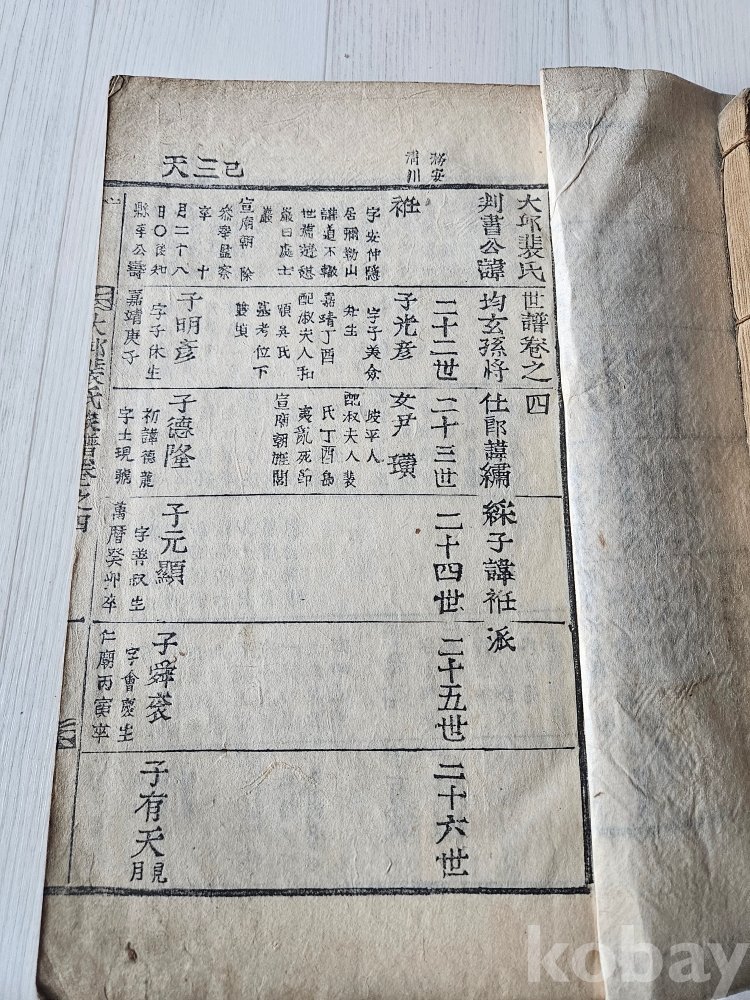 大邱裴氏世譜卷之四
判書公諱均玄孫將仕郎諱繡
子諱
派
二十二世
二十三世
二十四世
二十五世
二十六世
天三己
務安
淸川
字安仲隱
居彌勒山
諱道不輟
世薦遊逸
嚴曰處士
巖
宣廟朝除
參奉監察
卒十
月二十八
日〇後知
縣李公壽
子光彦
字子美僉
知生
嘉靖丁酉
配淑夫人和
順吳氏
墓考位下
雙墳
子明彦
字子休生
嘉靖庚子
女尹瓚
坡平人
配淑夫人裴
氏丁酉島
夷亂死節
宣廟朝旌閭
子德隆
初諱德龍
字士現號
子元顯
字善叔生
萬曆癸卯卒
子舜
字會慶生
仁廟丙寅卒
子有天
見
月
大邱裴氏族譜卷之四
kobay